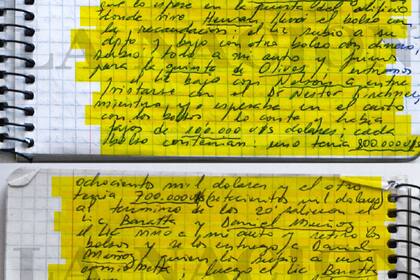 que lo espere en la puerta del edificio
donde vino Hernan, llevó el bolso con
la recaudacion; el Lic subio a su
dpto y bajo con otro bolso con dinero,
subio todo a mi auto y fuimos
para la quinta de Olivos,
el Lic bajo con Nelson a entre
vistarse con el Dr Nestor Kirchner
mientras yo esperaba en el auto
con los bolsos. Lo conte y habia
fajos de 100.000 U$S dolares; cada
bolso contenian: uno tenia 800.000 U$S
ochocientos mil dolares y el otro
tenia 700.000 U$S (setecientos mil dolares)
al termino de los 20' salieron el
Lic Baratta y Daniel Muñoz
el Lic vino a mi auto y retiro los
bolsos y se los entrego a Daniel
Muñoz quien los subio a una
camioneta, luego el Lic Baratta